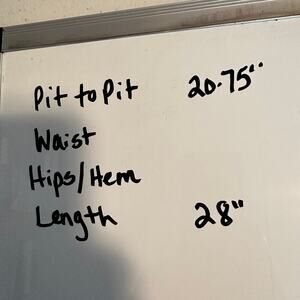 Pit to Pit 20.75"
Waist
Hips/Hem
Length 28"